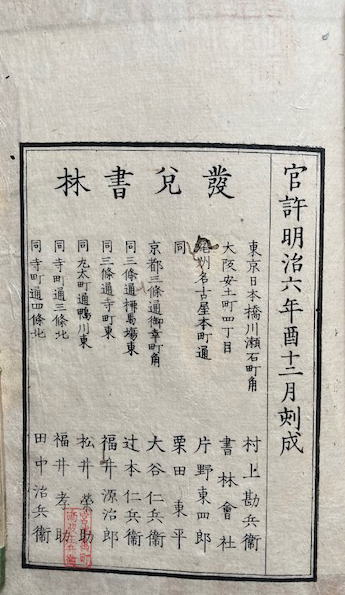 官許明治六年酉十二月刻成
發兌書林
東京日本橋川瀬石町角 村上勘兵衞
大阪安土町四丁目 書林會社
尾州名古屋本町通 片野東四郎
同 栗田東平
京都三條通御幸町角 大谷仁兵衞
同三條通柳馬塲東 辻本仁兵衞
同三條通寺町東 福井源治郎
同丸太町通鴨川東 松井榮助
同寺町通三條北 福井孝助
同寺町通四條北 田中治兵衞